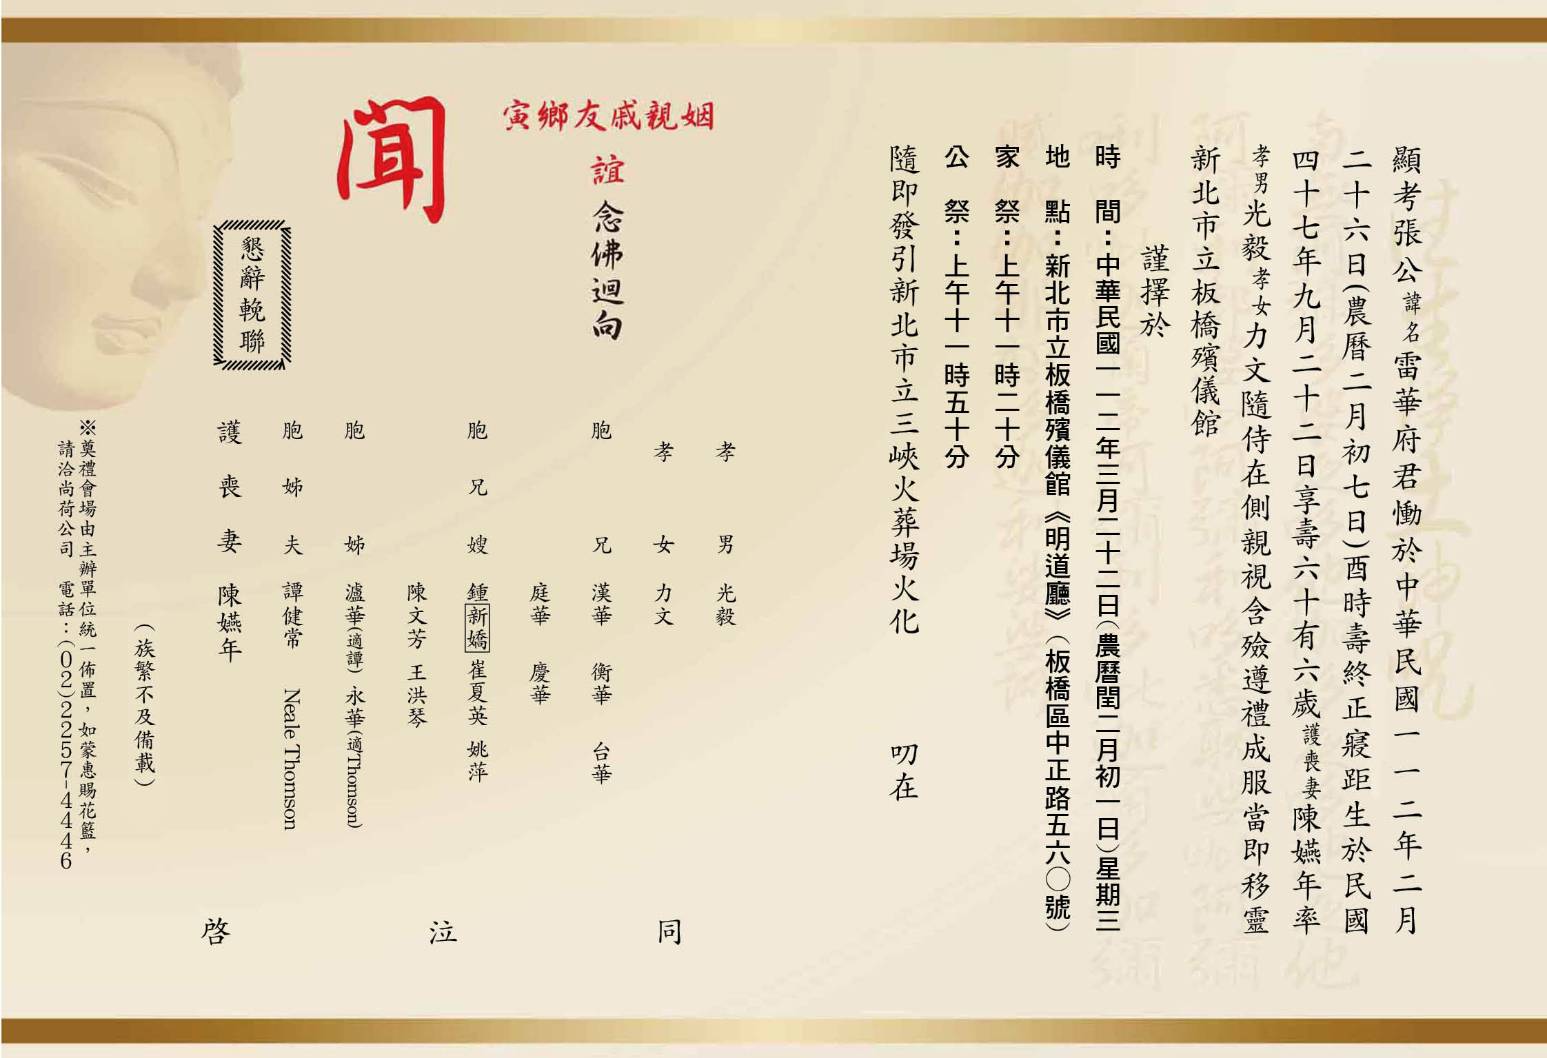 顯考張公諱名雷華府君慟於中華民國一一二年二月
二十六日(農曆二月初七日)酉時壽終正寢距生於民國
四十七年九月二十二日享壽六十有六歲護喪妻陳嬿年率
孝男光毅孝女力文隨侍在側親視含殮遵禮成服當即移靈
新北市立板橋殯儀館
謹擇於
時　間：中華民國一一二年三月二十二日(農曆閏二月初一日)星期三
地　點：新北市立板橋殯儀館《明道廳》(板橋區中正路五六〇號)
家　祭：上午十一時二十分
公　祭：上午十一時五十分
隨即發引新北市立三峽火葬場火化　　　叨在
姻親戚友鄉寅
誼念佛迴向
聞
懇辭輓聯
孝男 光毅
孝女 力文
胞兄 漢華 衡華 台華
庭華 慶華
胞兄嫂 鍾新嬌 崔夏英 姚萍
陳文芳 王洪琴
胞姊 瀘華(適譚) 永華(適Thomson)
胞姊夫 譚健常 Neale Thomson
護喪妻 陳嬿年
(族繁不及備載)
同　泣　啓
※奠禮會場由主辦單位統一佈置，如蒙惠賜花籃，
請洽尚荷公司 電話：(02)2257-4446